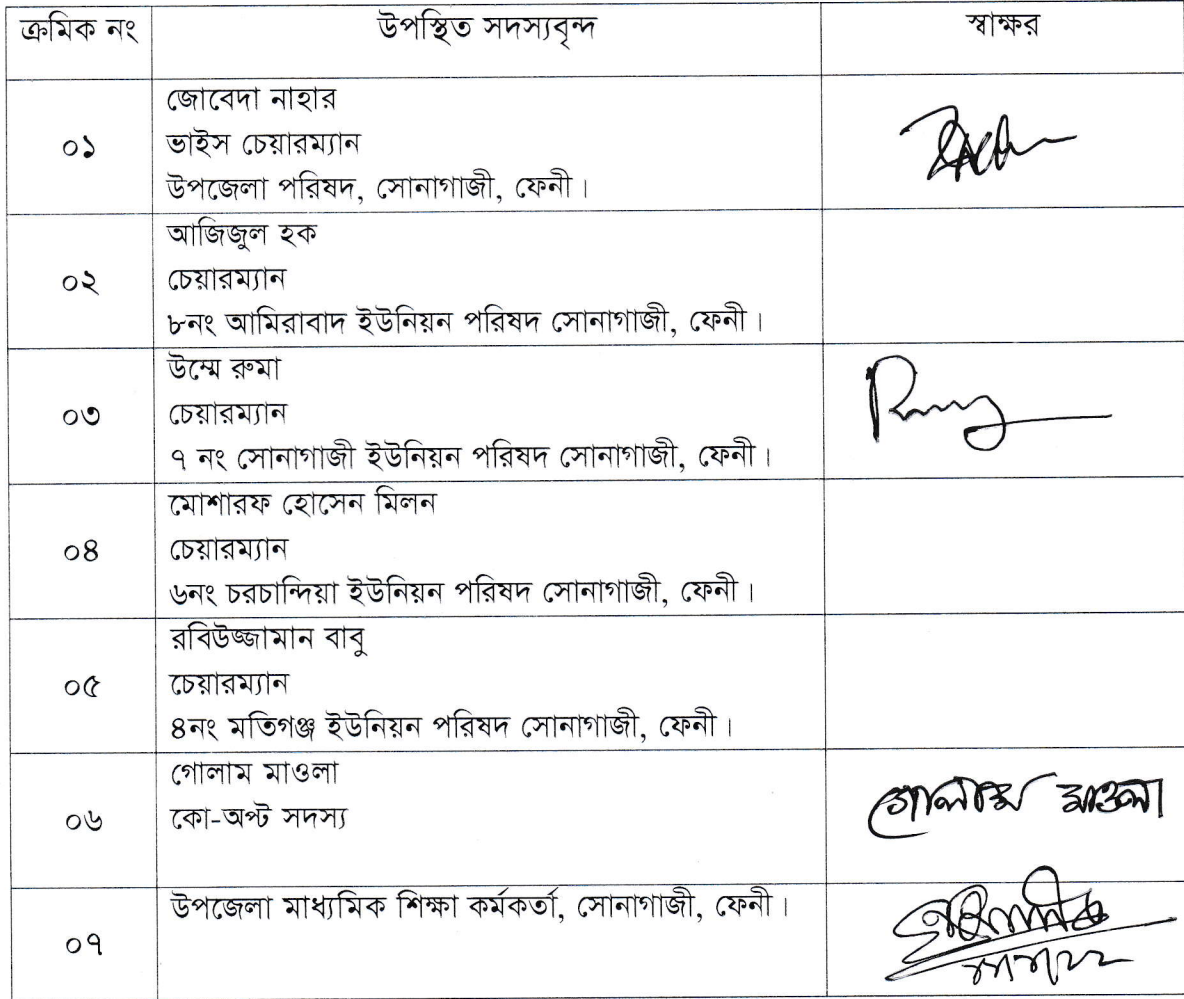 ক্রমিক নং উপস্থিত সদস্যবৃন্দ স্বাক্ষর
জোবেদা নাহার
০১ ভাইস চেয়ারম্যান
উপজেলা পরিষদ, সোনাগাজী, ফেনী।
আজিজুল হক
০২ চেয়ারম্যান
৮নং আমিরাবাদ ইউনিয়ন পরিষদ সোনাগাজী, ফেনী।
উম্মে রুমা
০৩ চেয়ারম্যান
৭ নং সোনাগাজী ইউনিয়ন পরিষদ সোনাগাজী, ফেনী।
মোশারফ হোসেন মিলন
০৪ চেয়ারম্যান
৬নং চরচান্দিয়া ইউনিয়ন পরিষদ সোনাগাজী, ফেনী।
রবিউজ্জামান বাবু
০৫ চেয়ারম্যান
৪নং মতিগঞ্জ ইউনিয়ন পরিষদ সোনাগাজী, ফেনী।
গোলাম মাওলা
০৬ কো-অপ্ট সদস্য গোলাম মাওলা
উপজেলা মাধ্যমিক শিক্ষা কর্মকর্তা, সোনাগাজী, ফেনী।
০৭